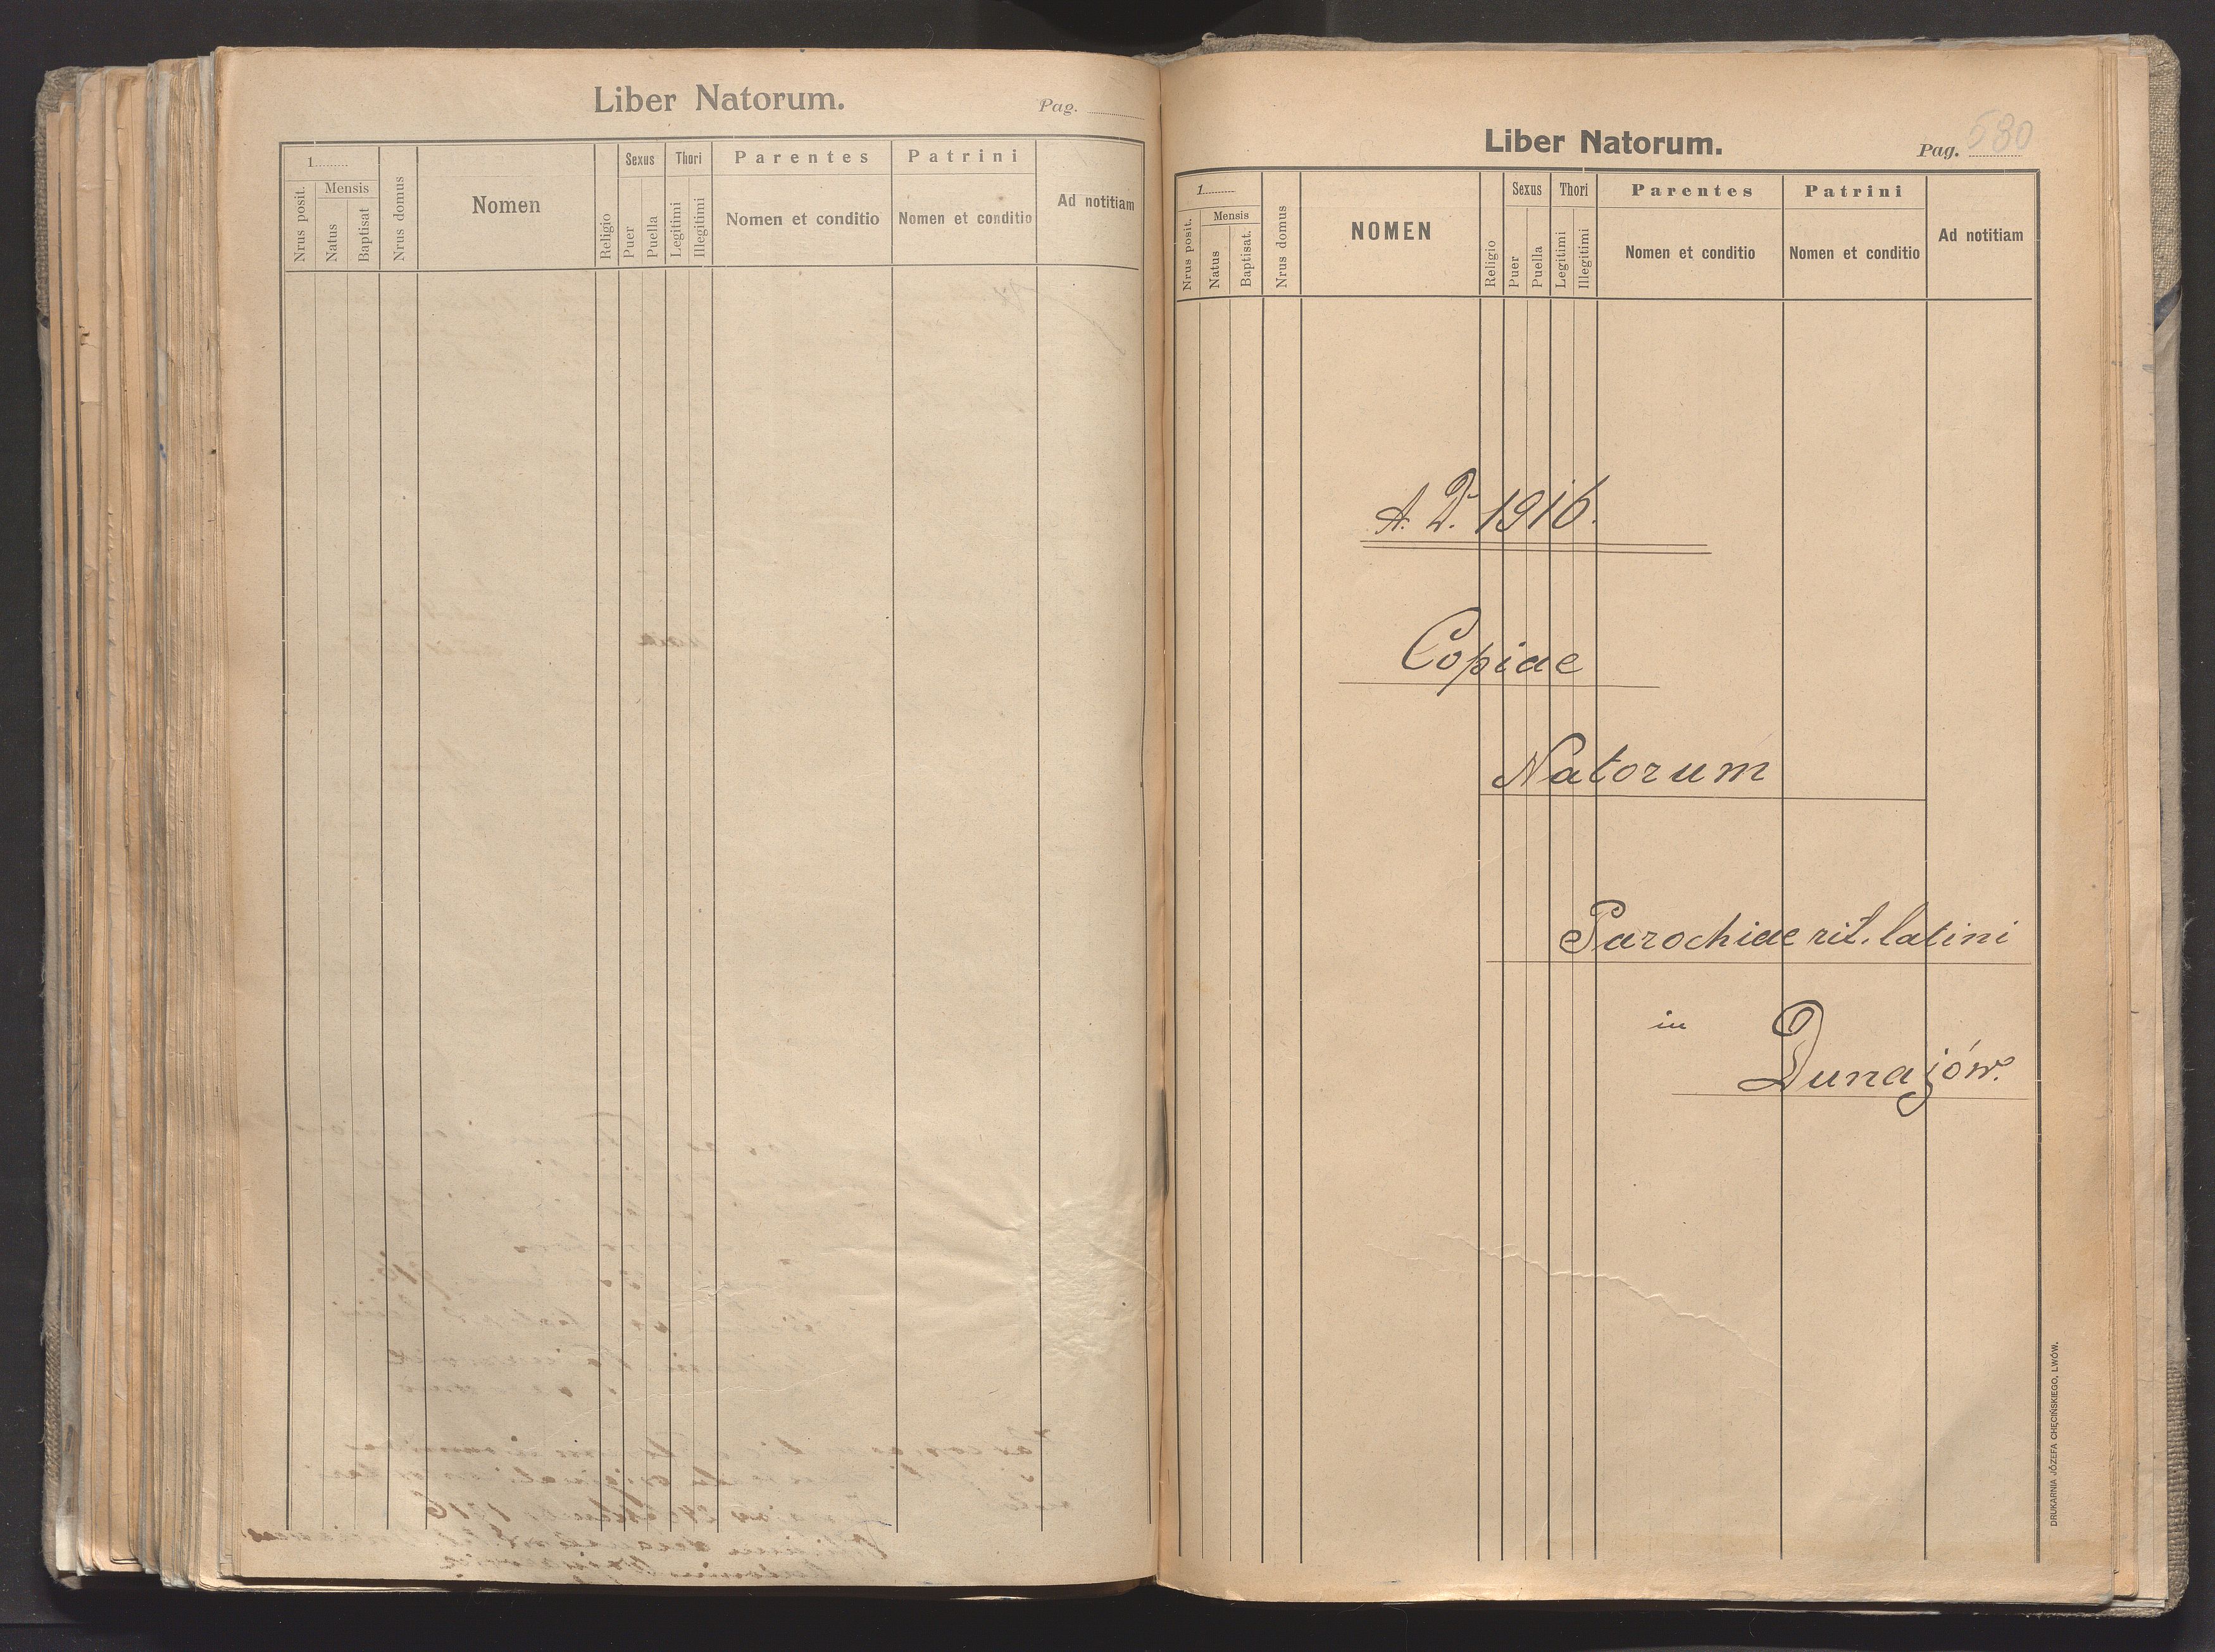 Liber Natorum.
Pag.
1
Nrus posit.
Mensis
Natus
Baptisat
Nrus domus
Nomen
Religio
Sexus
Puer
Puella
Thori
Legitimi
Illegitimi
Parentes
Nomen et conditio
Patrini
Nomen et conditio
Ad notitiam
Liber Natorum.
Pag. 580
1
Nrus posit.
Mensis
Natus
Baptisat.
Nrus domus
NOMEN
Religio
Sexus
Puer
Puella
Thori
Legitimi
Illegitimi
Parentes
Nomen et conditio
Patrini
Nomen et conditio
Ad notitiam
A. D. 1916.
Copiae
Natorum
Parochiae rit. latini
in
Dunajów.
DRUKARNIA JÓZEFA CHĘCIŃSKIEGO, LWÓW.